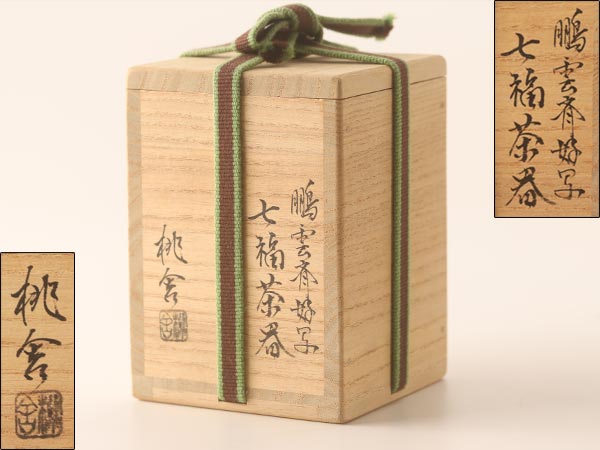 鵬雲斎好写
七福茶器
桃舎
鵬雲斎好写
七福茶器
桃舎